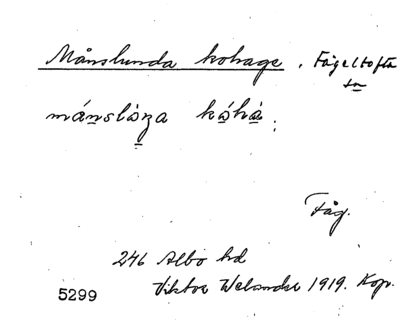 Månslunda kohage. Fågeltofta
sn
Fåg.
246 Albo hd
Viktor Welander 1919. Kop.
5299